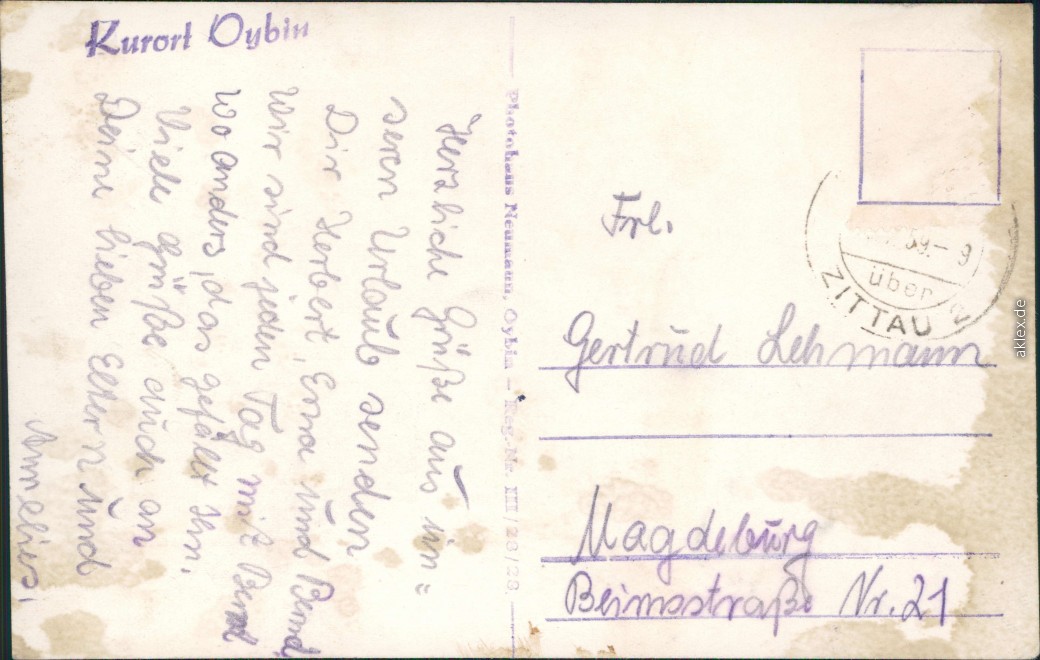 Kurort Oybin
Herzliche Grüße aus un=
seren Urlaub senden
Dir Herbert, Erna und Bernd
Wir sind jeden Tag mit Bernd
wo anders, das gefällt ihn.
Viele Grüße auch an
Deine lieben Eltern und
Annelies.
Photohaus Neumann, Oybin - Reg.-Nr. III/28/28
59.-9
über
ZITTAU 2
Frl.
Gertrud Lehmann
Magdeburg
Beimsstraße Nr. 21
aklex.de